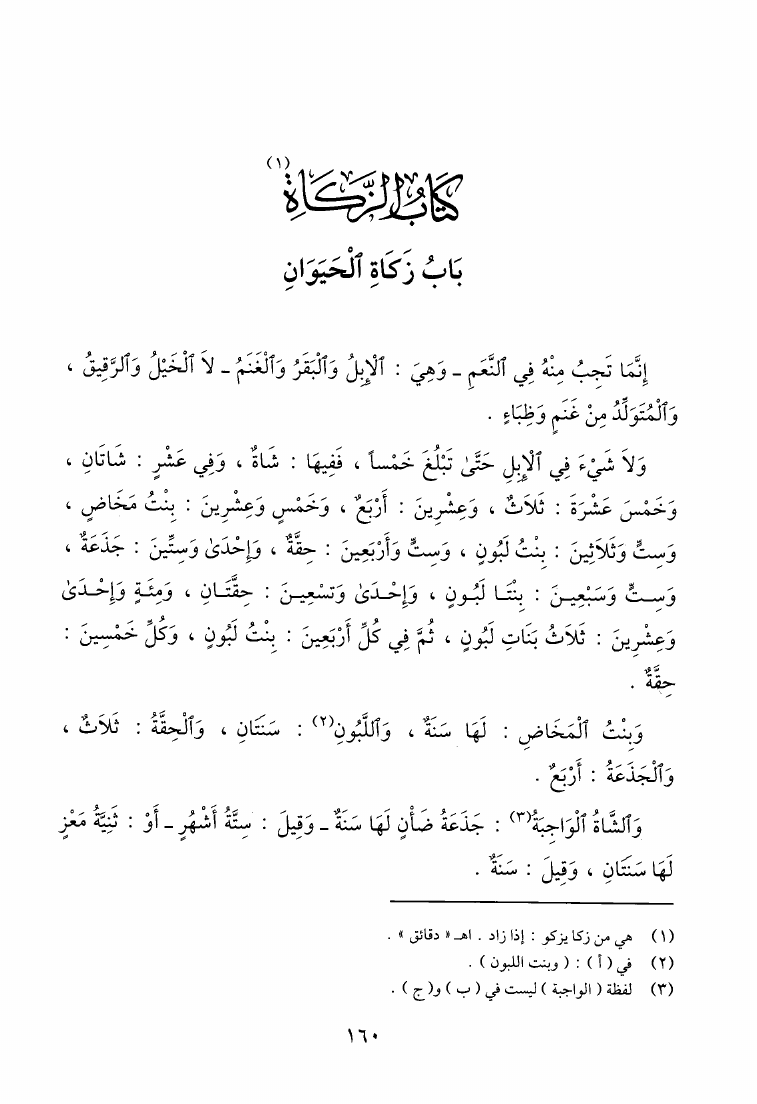 كِتَابُ الزَّكَاةِ (١)
بَابُ زَكَاةِ ٱلْحَيَوَانِ
إِنَّمَا تَجِبُ مِنْهُ فِي ٱلنَّعَمِ ـ وَهِيَ : ٱلْإِبِلُ وَٱلْبَقَرُ وَٱلْغَنَمُ ـ لاَ ٱلْخَيْلُ وَٱلرَّقِيقُ ،
وَٱلْمُتَوَلِّدُ مِنْ غَنَمٍ وَظِبَاءٍ .
وَلاَ شَيْءَ فِي ٱلْإِبِلِ حَتَّىٰ تَبْلُغَ خَمْساً ، فَفِيهَا : شَاةٌ ، وَفِي عَشْرٍ : شَاتَانِ ،
وَخَمْسَ عَشْرَةَ : ثَلاَثٌ ، وَعِشْرِينَ : أَرْبَعٌ ، وَخَمْسٍ وَعِشْرِينَ : بِنْتُ مَخَاضٍ ،
وَسِتٍّ وَثَلاَثِينَ : بِنْتُ لَبُونٍ ، وَسِتٍّ وَأَرْبَعِينَ : حِقَّةٌ ، وَإِحْدَىٰ وَسِتِّينَ : جَذَعَةٌ ،
وَسِتٍّ وَسَبْعِينَ : بِنْتَا لَبُونٍ ، وَإِحْدَىٰ وَتِسْعِينَ : حِقَّتَانِ ، وَمِئَةٍ وَإِحْدَىٰ
وَعِشْرِينَ : ثَلاَثُ بَنَاتِ لَبُونٍ ، ثُمَّ فِي كُلِّ أَرْبَعِينَ : بِنْتُ لَبُونٍ ، وَكُلِّ خَمْسِينَ :
حِقَّةٌ .
وَبِنْتُ ٱلْمَخَاضِ : لَهَا سَنَةٌ ، وَٱللَّبُونِ(٢) : سَنَتَانِ ، وَٱلْحِقَّةُ : ثَلاَثٌ ،
وَٱلْجَذَعَةُ : أَرْبَعٌ .
وَٱلشَّاةُ ٱلْوَاجِبَةُ(٣) : جَذَعَةُ ضَأْنٍ لَهَا سَنَةٌ ـ وَقِيلَ : سِتَّةُ أَشْهُرٍ ـ أَوْ : ثَنِيَّةُ مَعْزٍ
لَهَا سَنَتَانِ ، وَقِيلَ : سَنَةٌ .
(١) هي من زكا يزكو : إذا زاد . اهـ « دقائق » .
(٢) في ( أ ) : ( وبنت اللبون ) .
(٣) لفظة ( الواجبة ) ليست في ( ب ) و( ج ) .
١٦٠